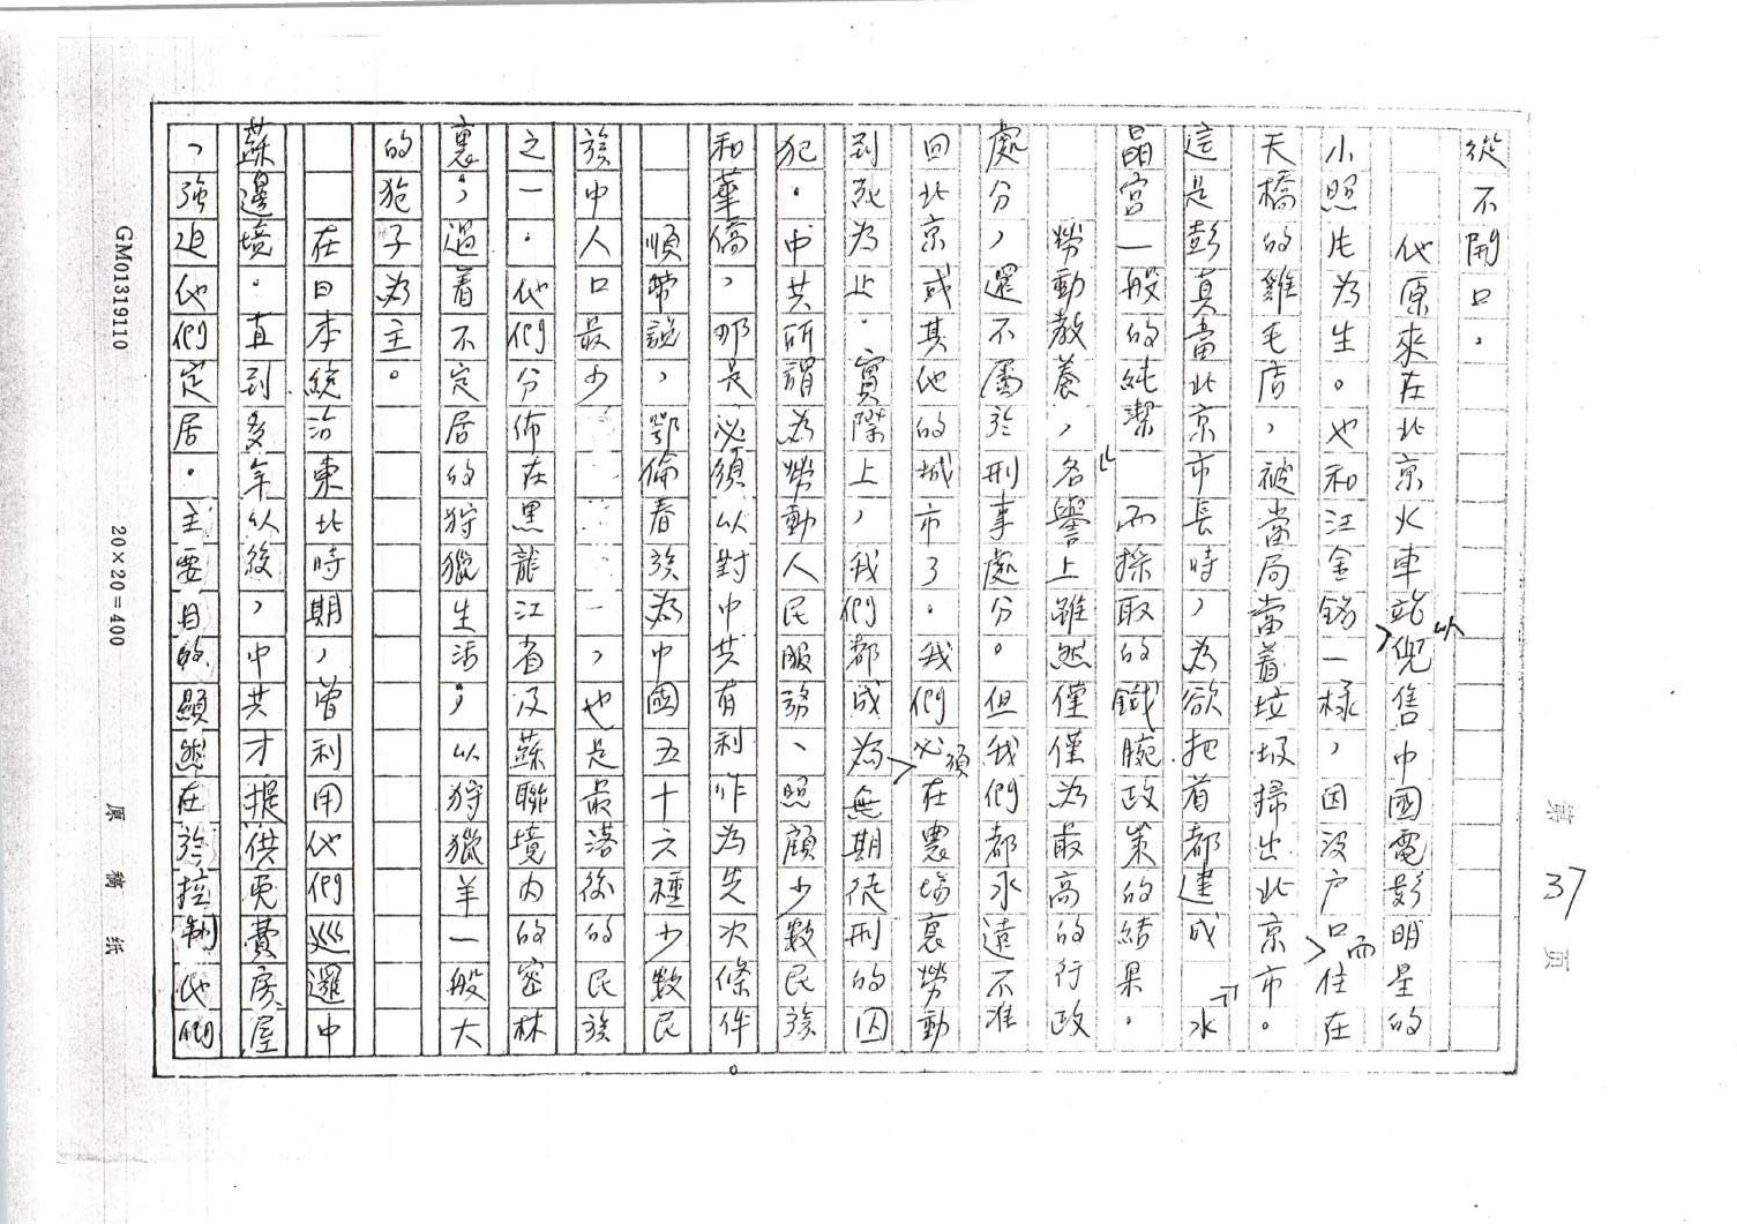 第 37 頁
從不開口，
他原來在北京火車站以兜售中國電影明星的
小照片為生。也和汪金銘一樣，因沒户口而住在
天橋的雞毛店，被當局當着垃圾掃出北京市。
這是彭真當北京市長時，為欲把首都建成『水
晶宮』一般的純潔而採取的鐵腕政策的結果，
勞動教養，名譽上雖然僅僅為最高的行政
處分，還不屬於刑事處分。但我們都永遠不准
回北京或其他的城市了．我們必須在農場裏勞動
到死為止．實際上，我們都成為無期徒刑的囚
犯．中共所謂為勞動人民服務、照顧少數民族
和華僑，那是必須以對中共有利作為先次條件
順帶說，鄂倫春族為中國五十六種少數民
族中人口最少一，也是最落後的民族
之一．他們分佈在黑龍江省及蘇聯境內的密林
裏，過着不定居的狩獵生活，以狩獵羊一般大
的狍子為主。
在日本統治東北時期，曾利用他們巡邏中
蘇邊境．直到多年以後，中共才提供免費房屋
，強迫他們定居．主要目的顯然在於控制他們
GM01319110
20×20=400
原稿紙